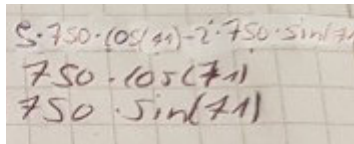 5·750·cos(71)-2·750·sin(71
750·cos(71)
750·sin(71)